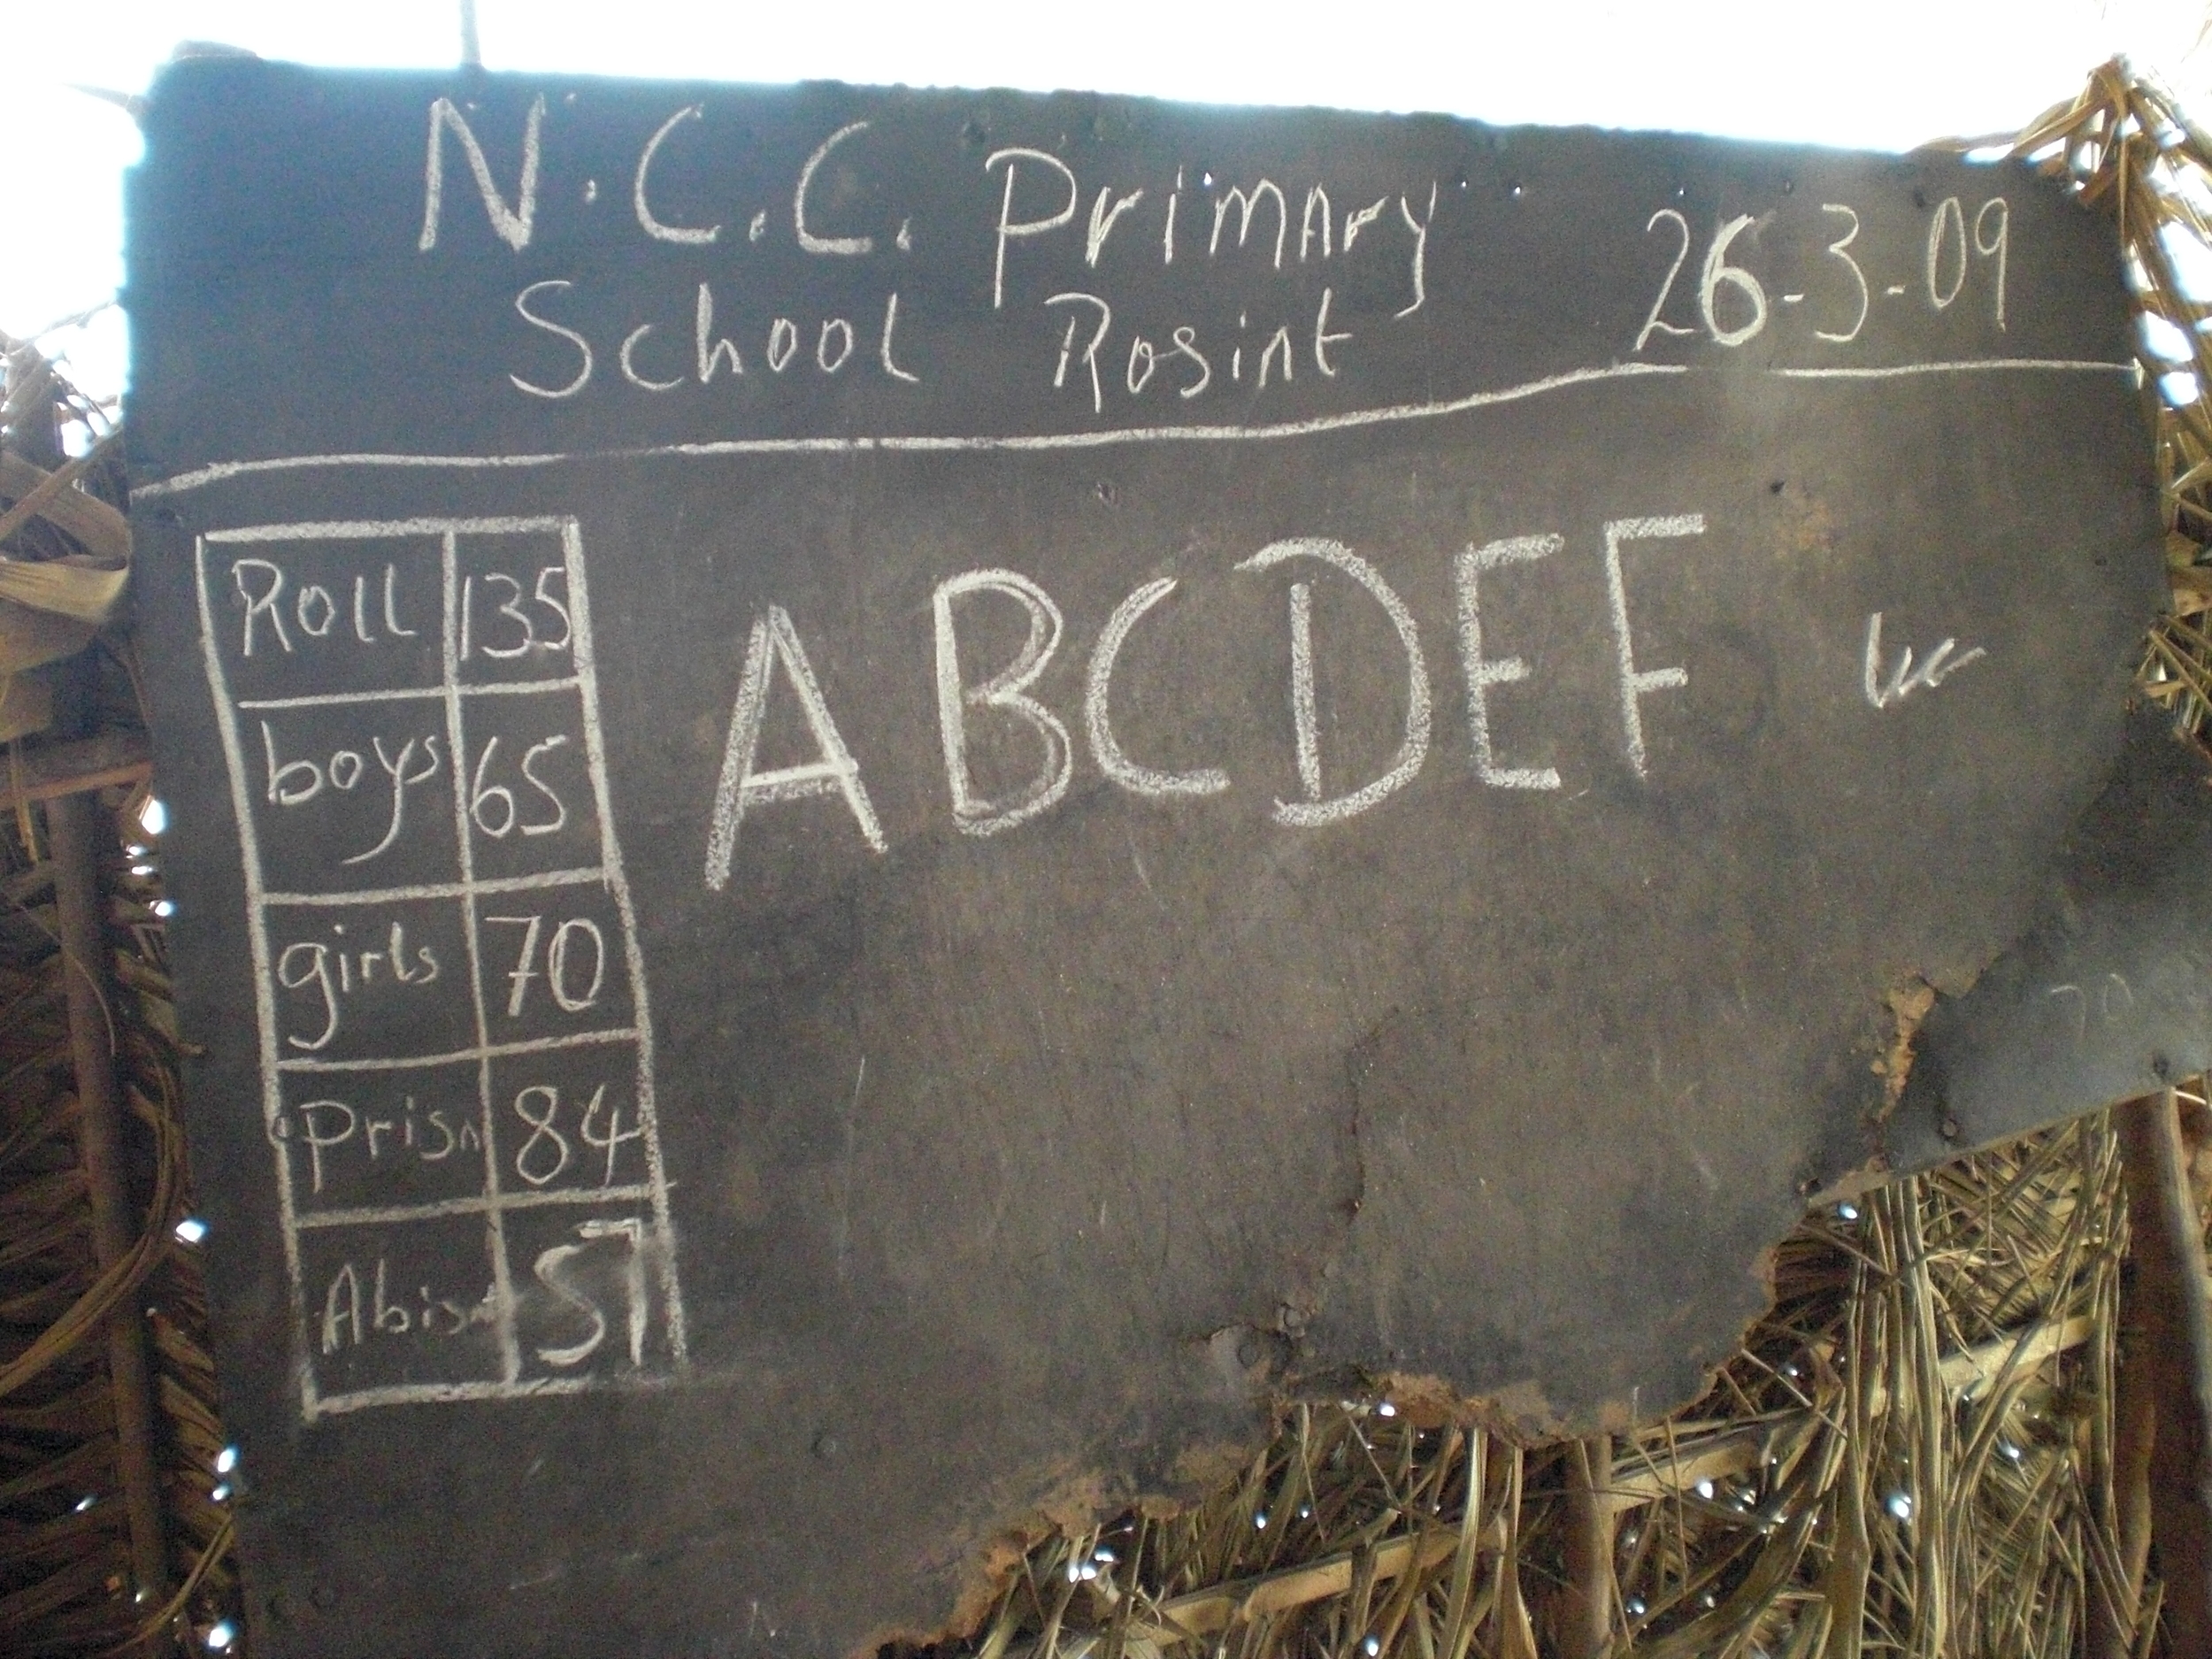 N.C.C. Primary
School Rosint 26-3-09
Roll 135
boys 65
girls 70
Prisn 84
57
ABCDEF
70